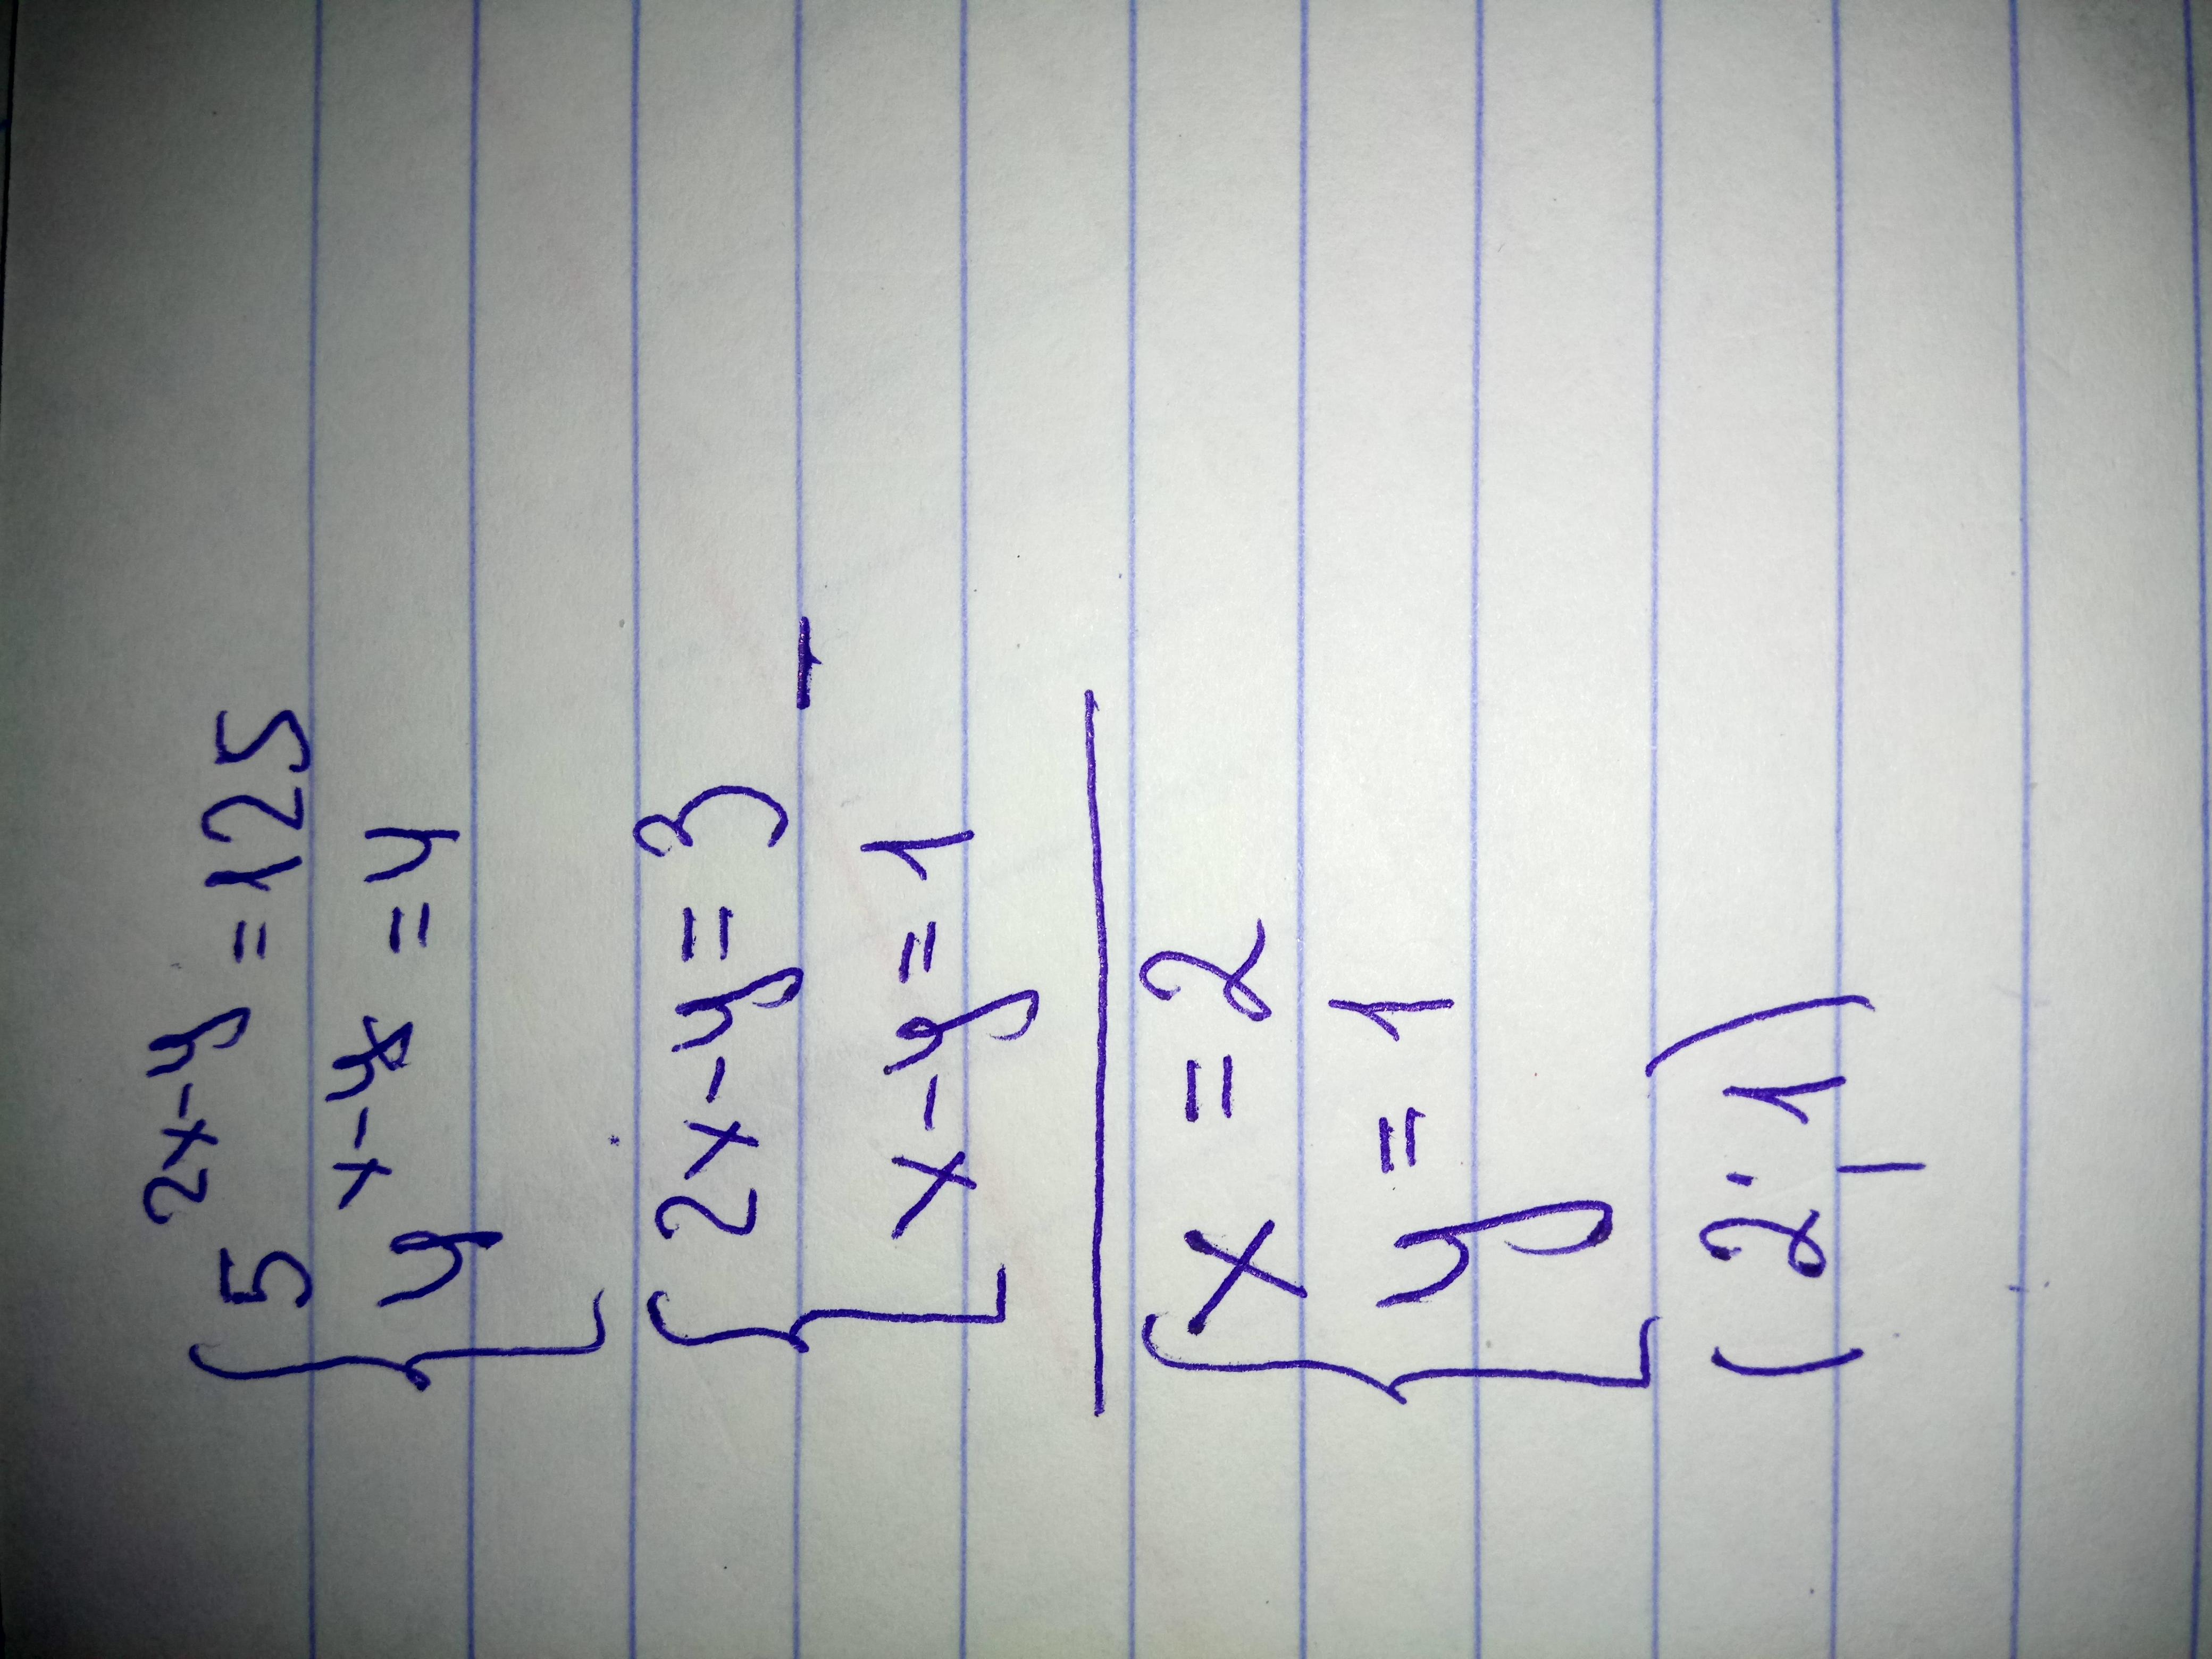 5^{2x-y} = 125
4^{x-y} = 4
2x-y = 3
x-y = 1
x = 2
y = 1
(2;1)